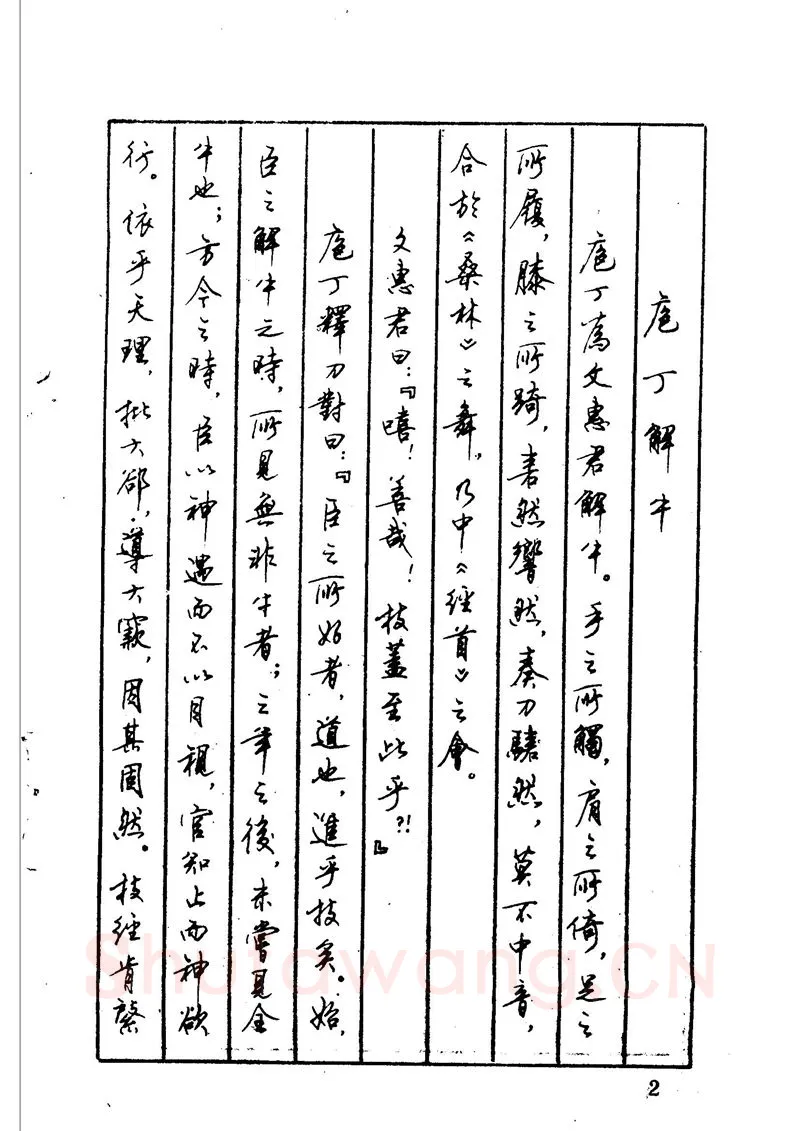 庖丁解牛
庖丁爲文惠君解牛。手之所觸，肩之所倚，足之
所履，膝之所踦，砉然響然，奏刀騞然，莫不中音，
合於《桑林》之舞，乃中《經首》之會。
文惠君曰：『嘻！善哉！技蓋至此乎？！』
庖丁釋刀對曰：『臣之所好者，道也，進乎技矣。始，
臣之解牛之時，所見無非牛者；三年之後，未嘗見全
牛也；方今之時，臣以神遇而不以目視，官知止而神欲
行。依乎天理，批大郤，導大窾，因其固然。技經肯綮
2
Shufawang.CN